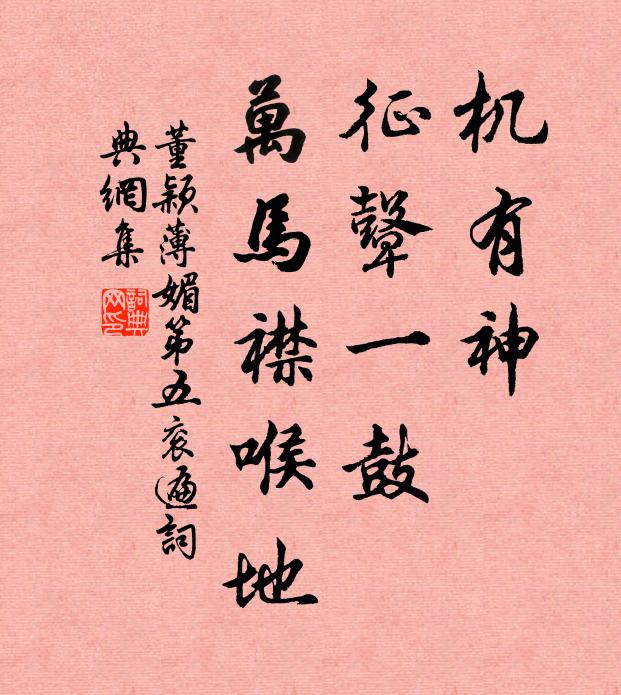 机有神
征鼙一鼓
萬馬襟喉地
董颖薄媚第五衮遍詞
典網集
詞典網印